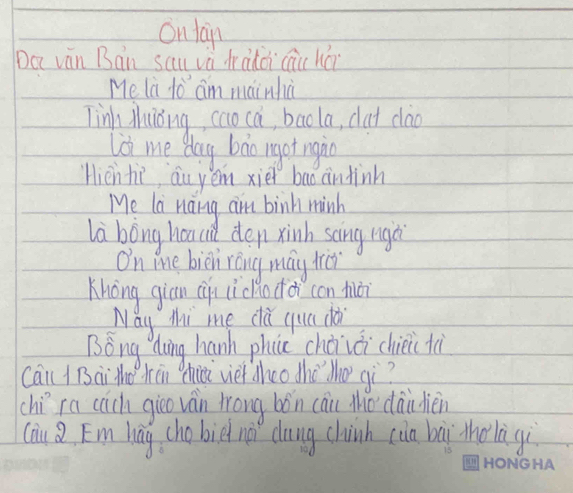 Ôn tập
Đọc văn Bản sau và trả lời câu hỏi
Mẹ là tổ ấm mái nhà
Tình thương, cao cả, bao la, dạt dào
Lời mẹ dạy bảo ngọt ngào
Hiền từ, âu yếm xiết bao ân tình
Mẹ là nắng ấm bình minh
Là bông hoa cúc đẹp xinh sáng ngời
Ơn mẹ biển rộng mây trời
Không gian ấp ủ cho đời con tươi
Nay thì mẹ đã qua đời
Bỗng dưng hạnh phúc chơi vơi chiều tà
Câu 1 Bài thơ trên được viết theo thể thơ gì?
chỉ ra cách gieo vần trong bốn câu thơ đầu tiên
Câu 2. Em hãy cho biết nội dung chính của bài thơ là gì.
HONG HA